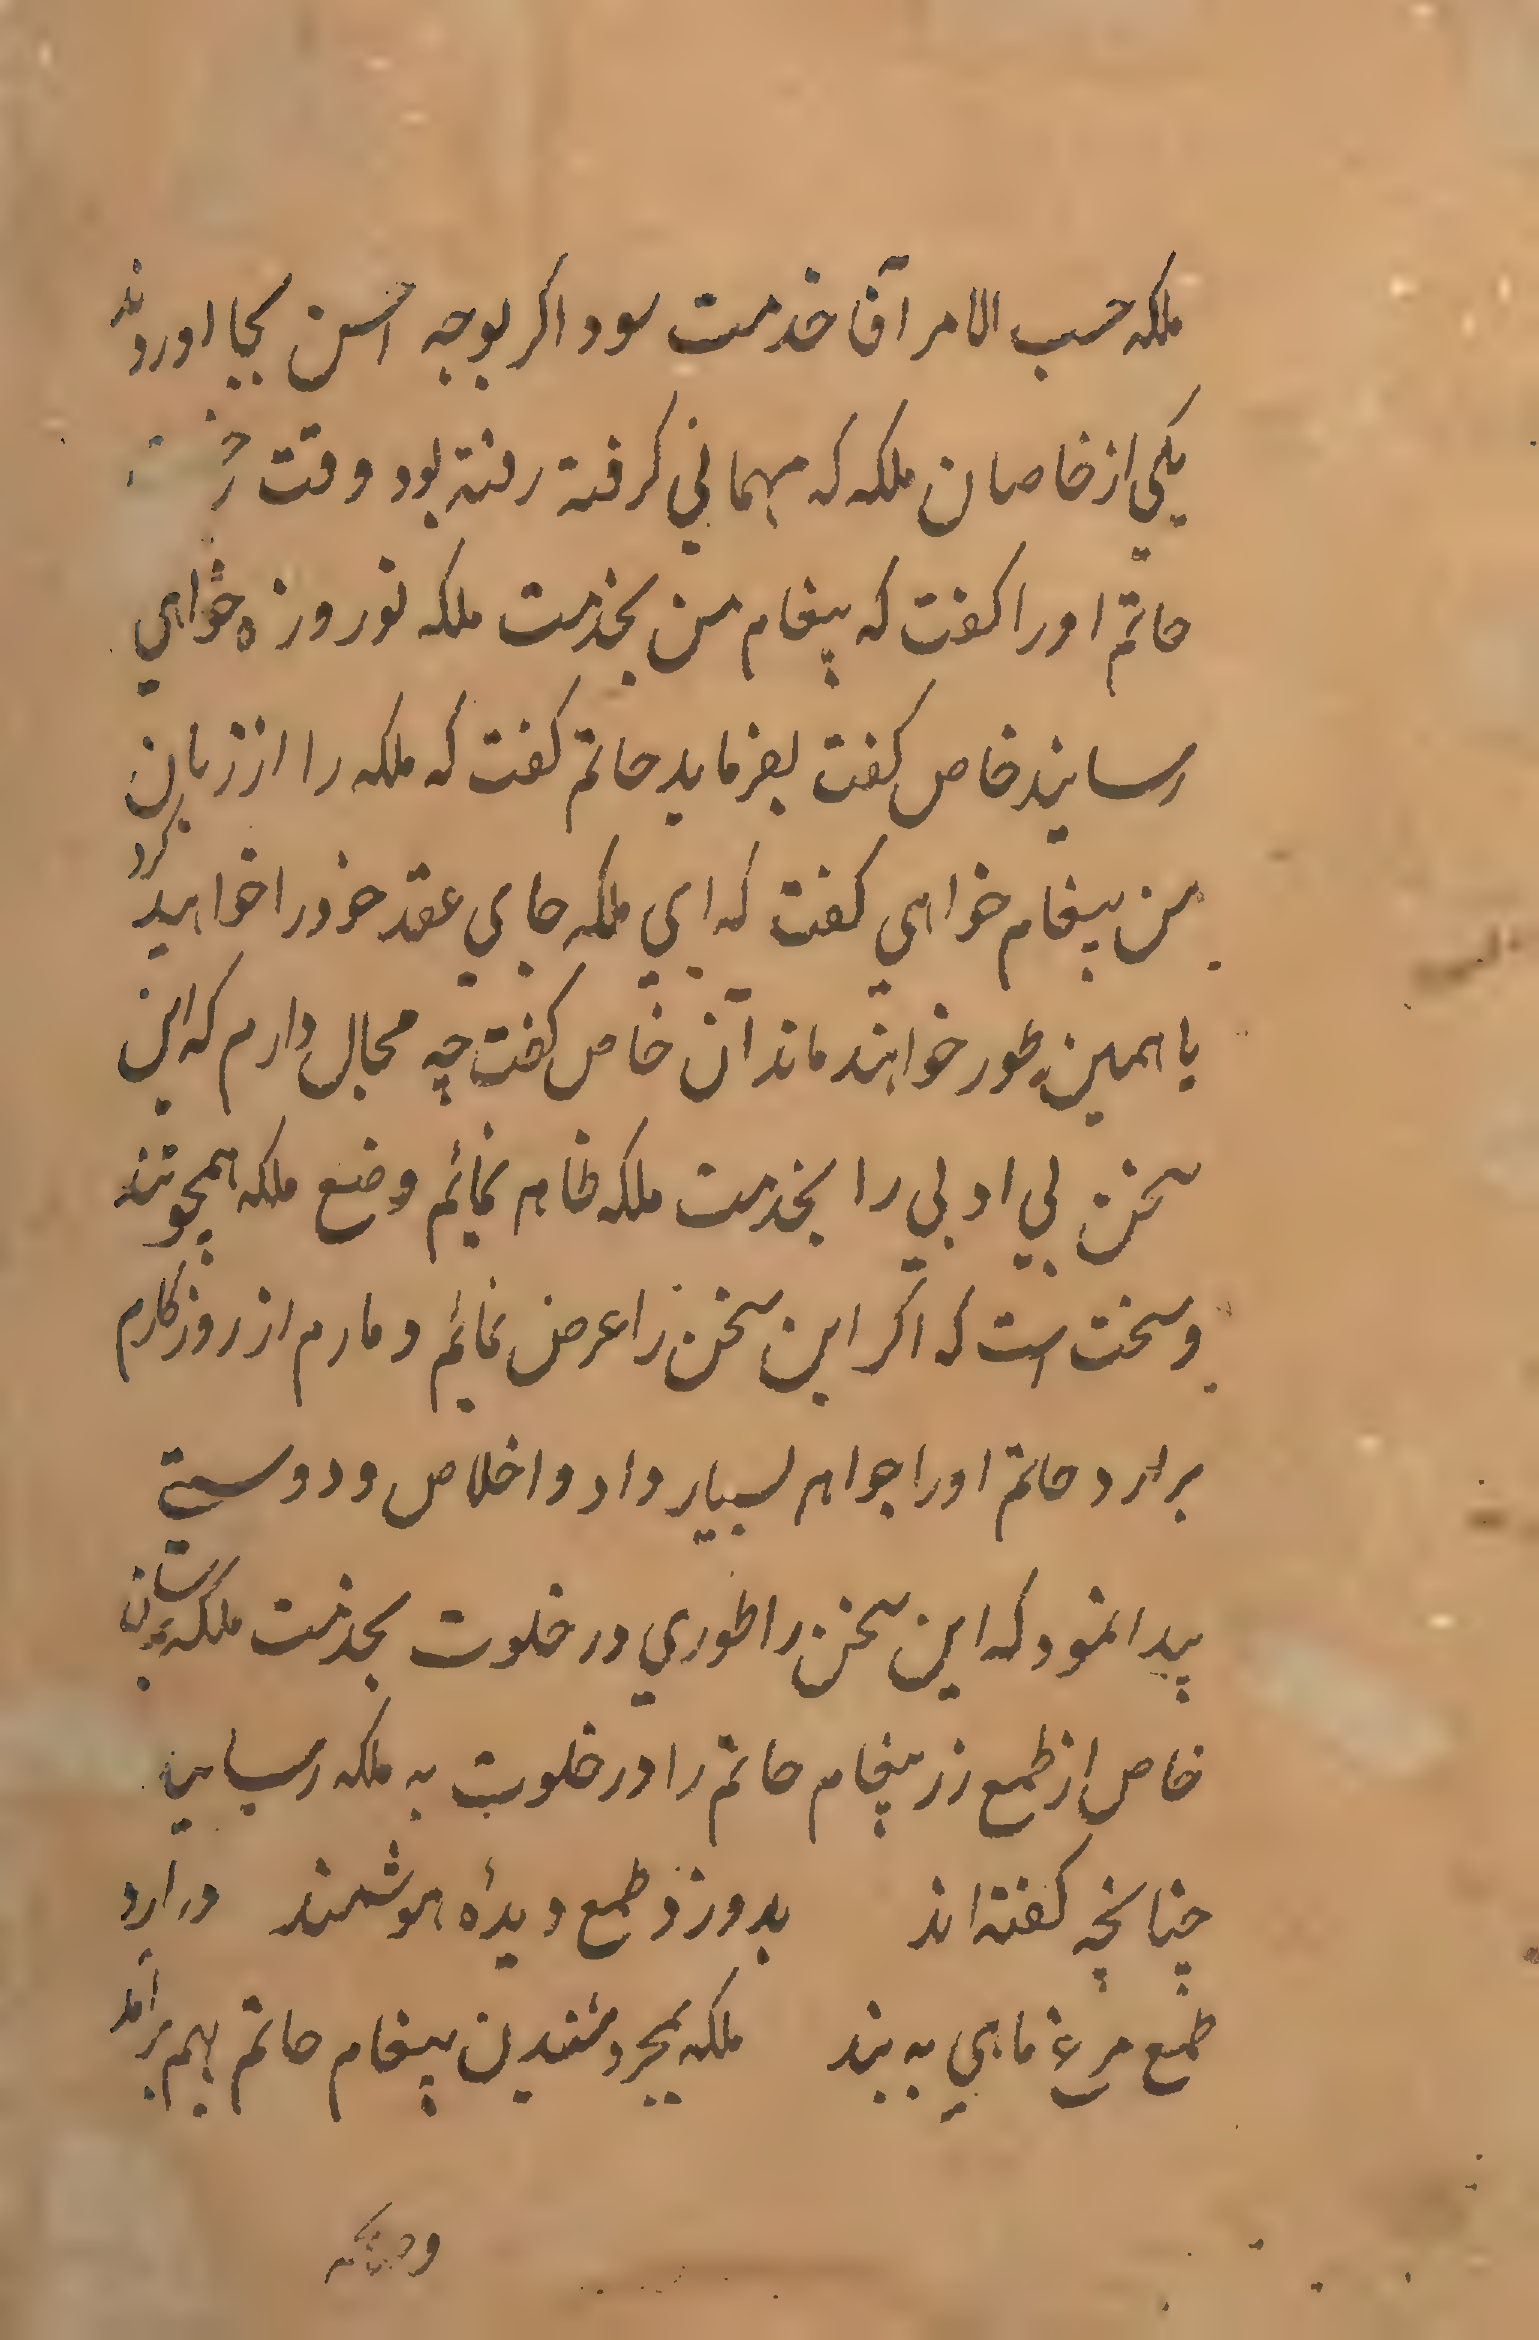 ملکه حسب الامر آقا خدمت سوداکر بوجه احسن بجا اوردند
یکی از خاصان ملکه که مهمانی کرفته رفته بود وقت
حاتم اورا کفت که پیغام من بخدمت ملکه نوروزه خواهی
رسانید خاص کفت بفرماید حاتم کفت که ملکه را از زبان
من پیغام خواهی کفت که ای ملکه جای عقد خود را خواهید کرد
یا همین طور خواهند ماند آن خاص کفت چه مجال دارم که این
سخن بی ادبی را بخدمت ملکه ظاهر نمائم وضع ملکه همچو تند
و سخت است که اکر این سخن را عرض نمائم دمارم از روزکارم
برارد حاتم اورا جواهر بسیار داد و اخلاص و دوستی
پیدا نمود که این سخن را طوری در خلوت بخدمت ملکه برسان
خاص از طمع زر پیغام حاتم را در خلوت به ملکه رسانید
چنانچه کفته اند بدوزد طمع دیدۀ هوشمند درارد
طمع مرغ ماهی به بند ملکه بمجرد شنیدن پیغام حاتم بهم برآمد